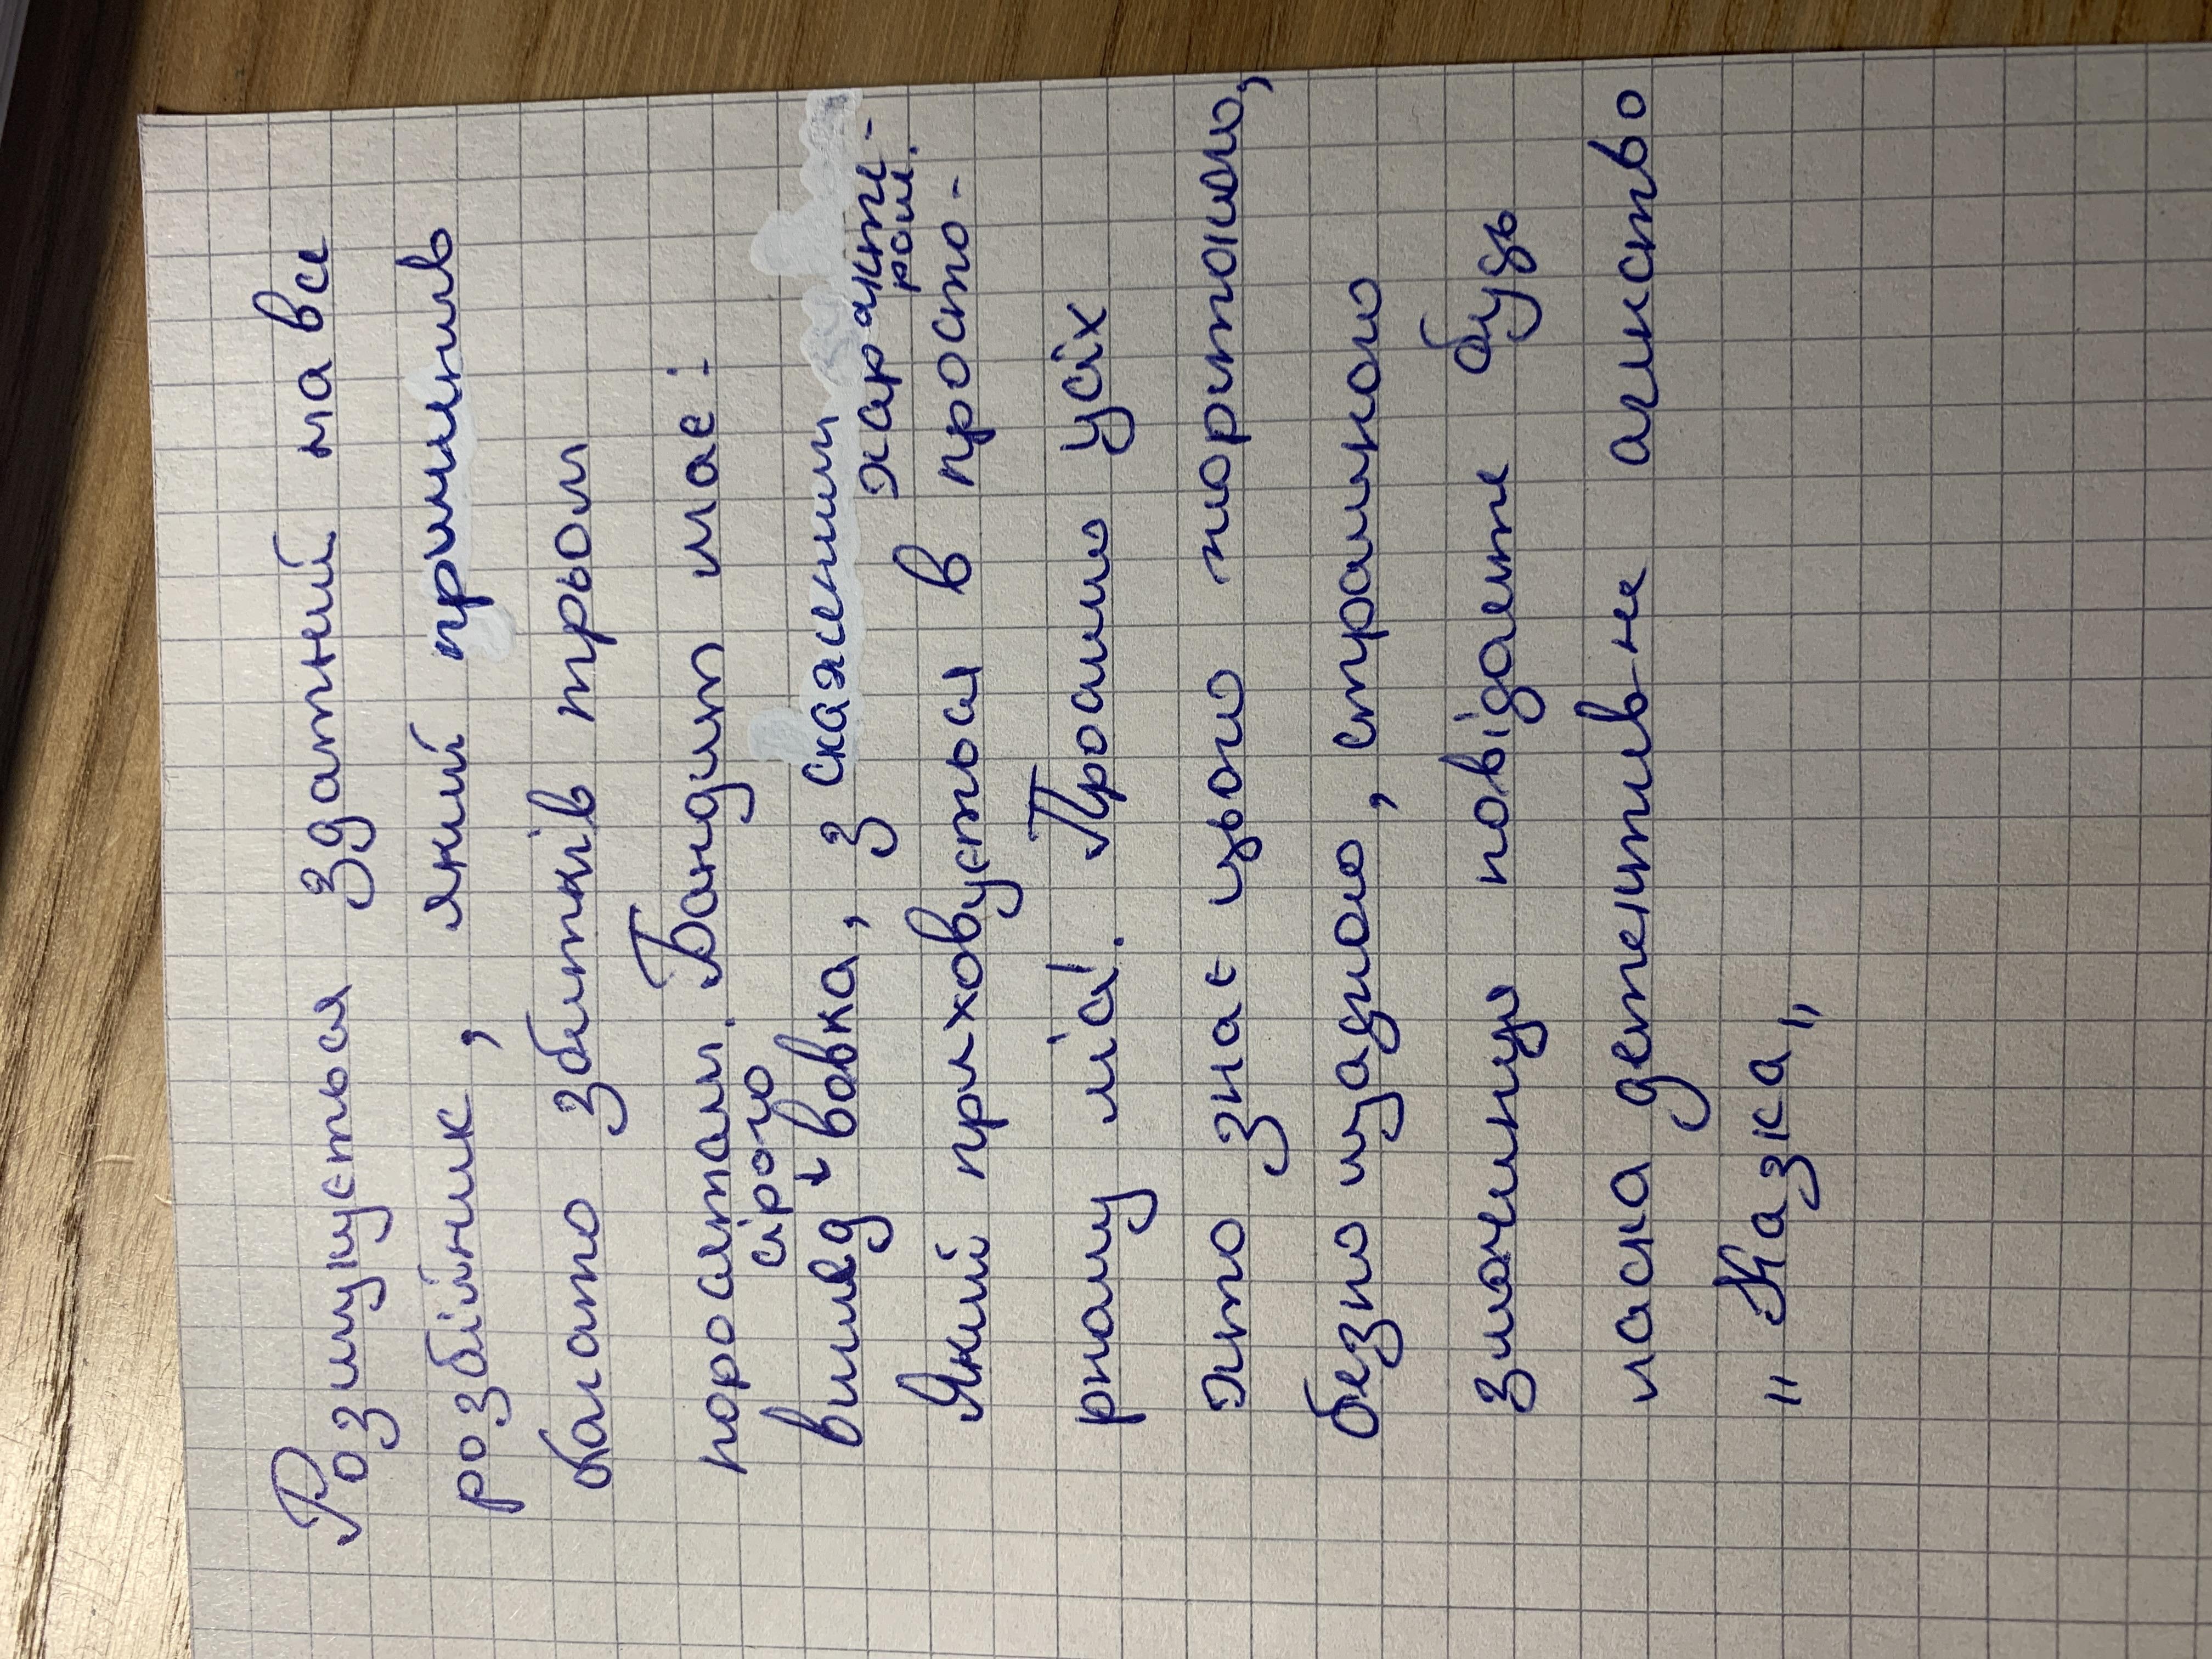 Розшукується здатний на все
розбійник, який причинив
багато збитків трьом
поросятам. Бандит має:
сірого
вигляд вовка, з скаженим характе-
ром.
Який приховується в просто-
рному лісі. Прошу усіх
хто знає цього моритого,
безпощадного, страшного
злочинця повідомте будь
ласка детективне агенство
"Казка"